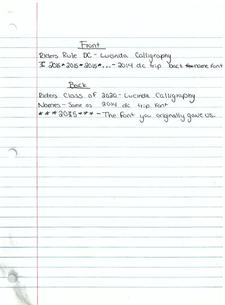 Front
Riders Rule DC - Lucinda Calligraphy
2015*2015*2015*...- 2014 dc trip font
Back
Riders Class of 2020 - Lucinda Calligraphy
Names - Same as 2014 dc trip font
***2035*** - The font you originally gave us.